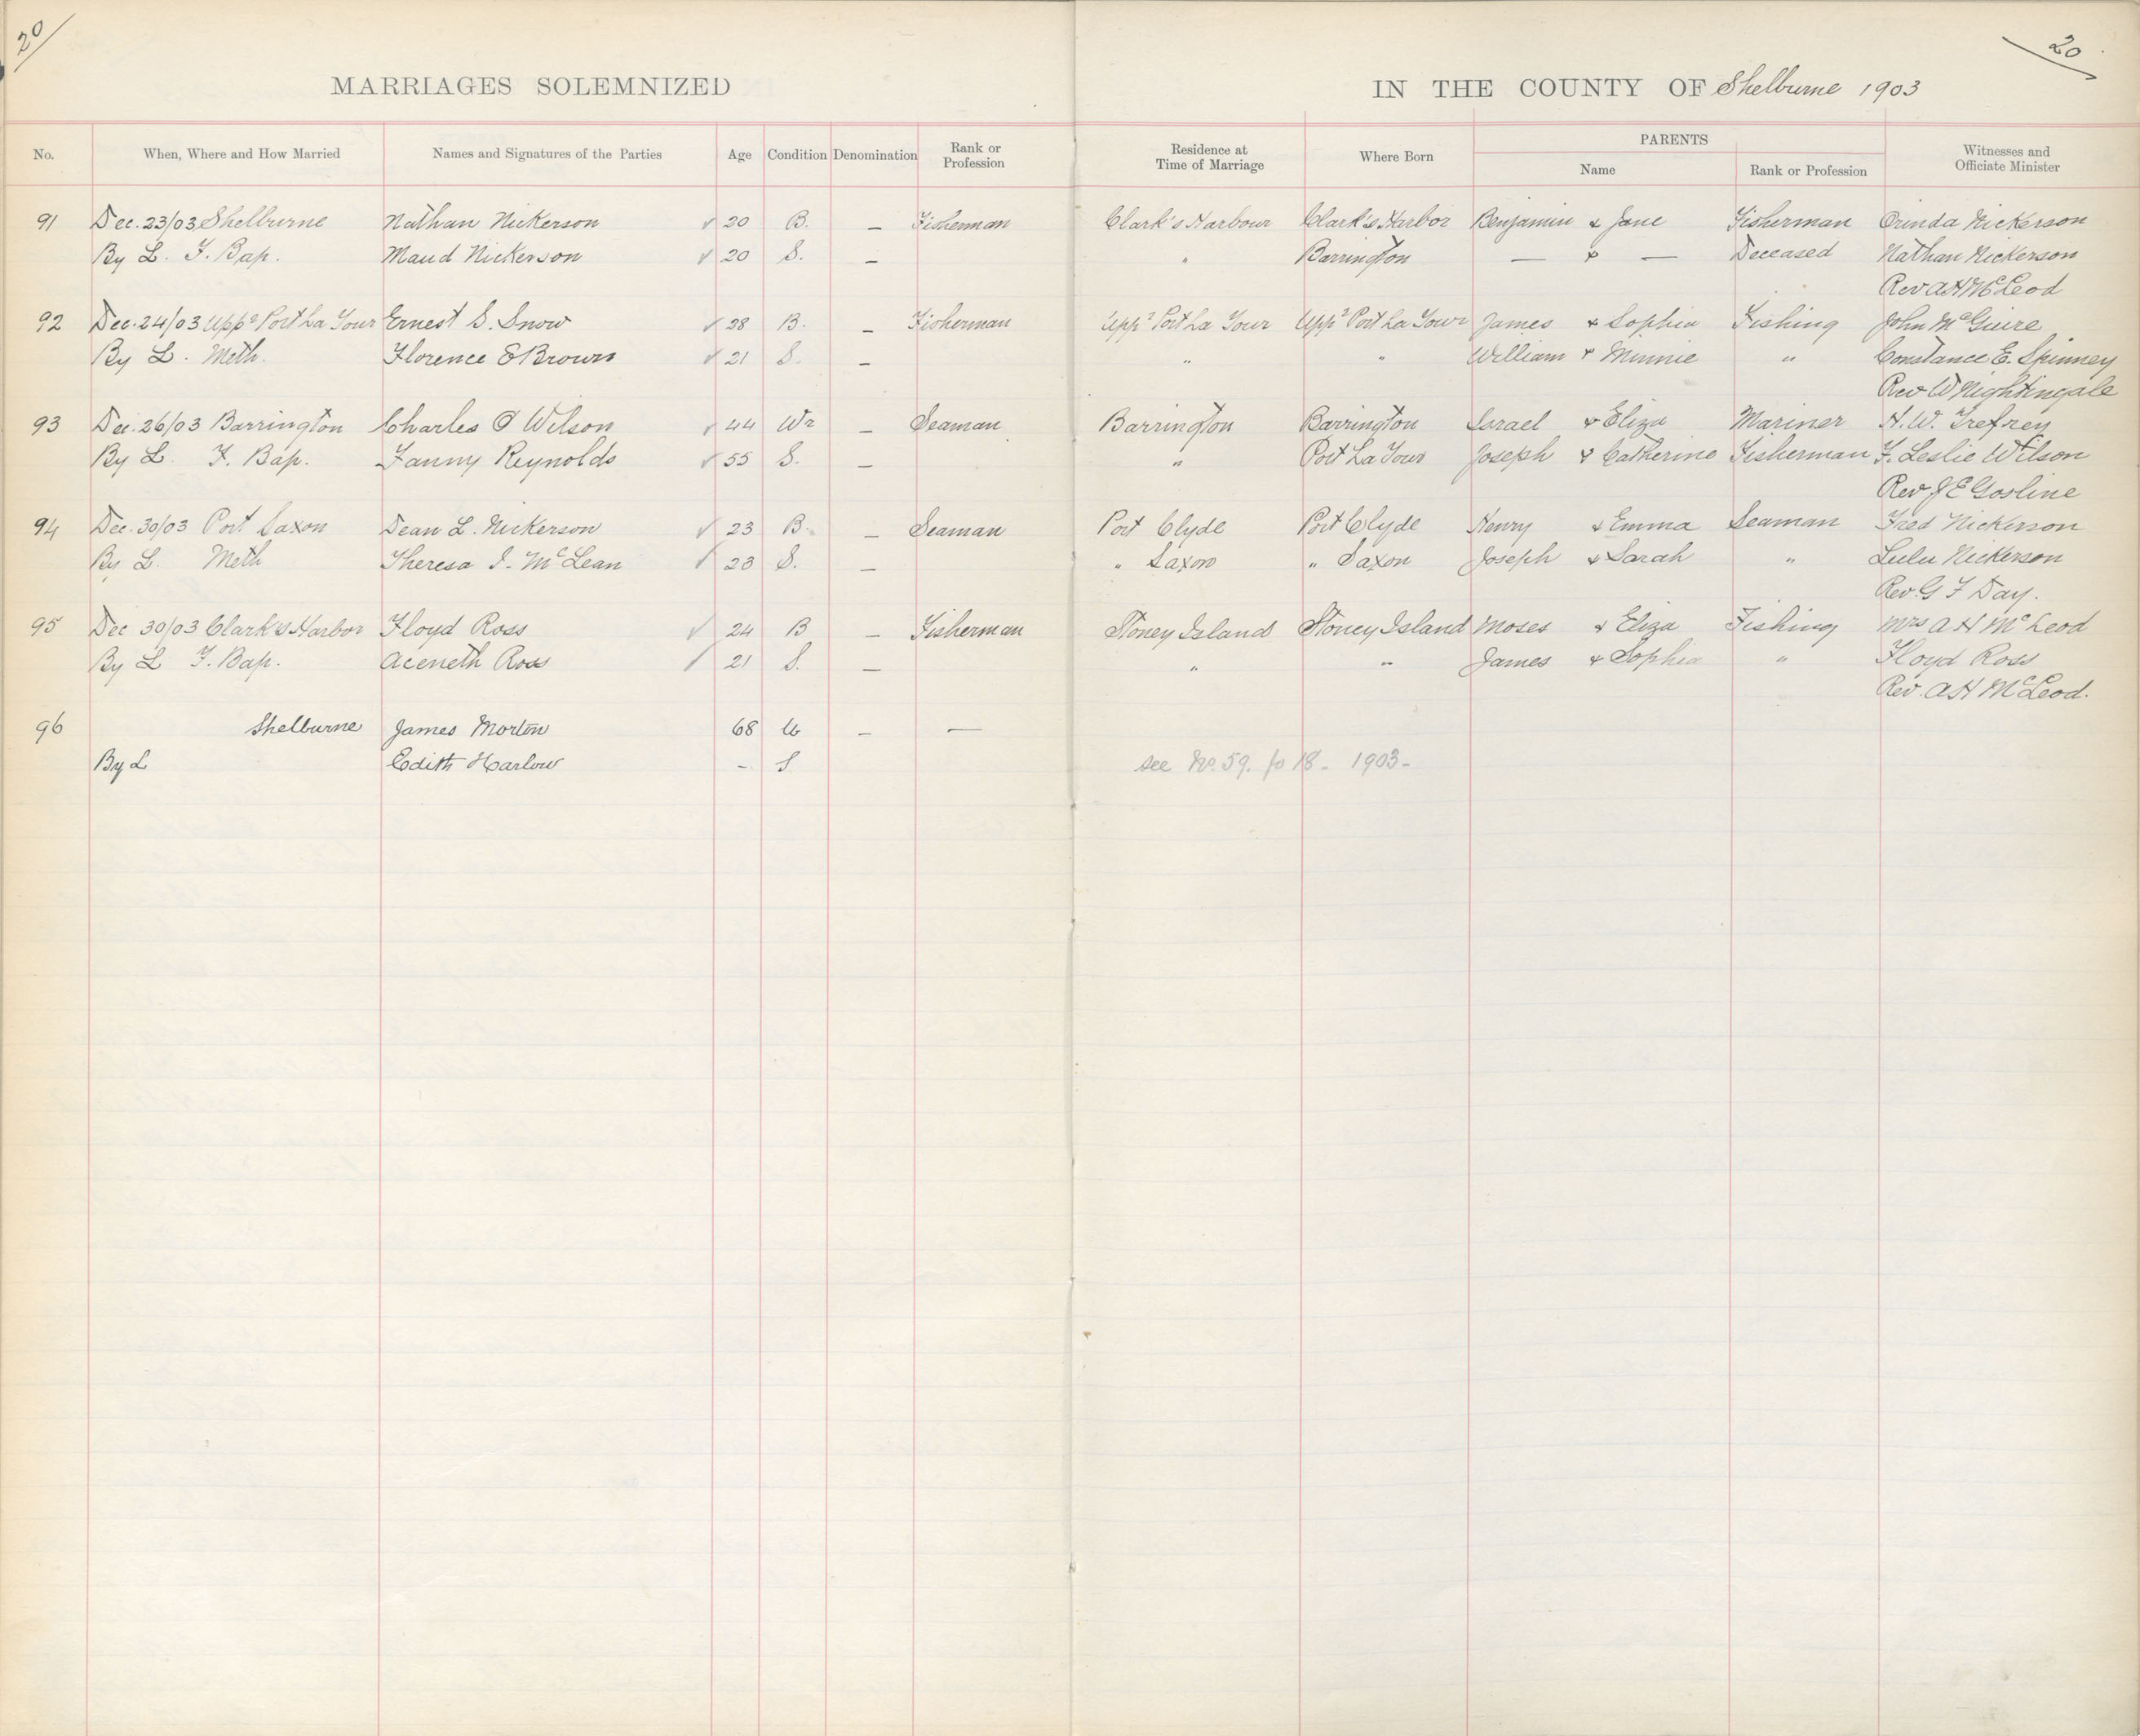 20
20
MARRIAGES SOLEMNIZED IN THE COUNTY OF Shelburne 1903
No. When, Where and How Married Names and Signatures of the Parties Age Condition Denomination Rank or Profession Residence at Time of Marriage Where Born PARENTS Name Rank or Profession Witnesses and Officiate Minister
91 Dec. 23/03 Shelburne Nathan Nickerson ✓ 20 B. — Fisherman Clark's Harbour Clark's Harbor Benjamin & Jane Fisherman Orinda Nickerson
By L. F. Bap. Maud Nickerson ✓ 20 S. — " Barrington — & — Deceased Nathan Nickerson
Rev A H McLeod
92 Dec. 24/03 Uppr Port La Tour Ernest S. Snow ✓ 28 B. — Fisherman Uppr Port La Tour Uppr Port La Tour James & Sophia Fishing John McGuire
By L. Meth. Florence E Brown ✓ 21 S. — " " William & Minnie " Constance E. Spinney
Rev W Nightingale
93 Dec. 26/03 Barrington Charles O Wilson ✓ 44 Wr — Seaman Barrington Barrington Israel & Eliza Mariner H. W. Trefrey
By L. F. Bap. Fanny Reynolds ✓ 55 S. — " Port La Tour Joseph & Catherine Fisherman F. Leslie Wilson
Rev J E Gosline
94 Dec. 30/03 Port Saxon Dean L. Nickerson ✓ 23 B. — Seaman Port Clyde Port Clyde Henry & Emma Seaman Fred Nickerson
By L. Meth Theresa I. McLean ✓ 23 S. — " Saxon " Saxon Joseph & Sarah " Lulu Nickerson
Rev. G F Day.
95 Dec 30/03 Clark's Harbor Floyd Ross ✓ 24 B — Fisherman Stoney Island Stoney Island Moses & Eliza Fishing Mrs A H McLeod
By L F. Bap. Aceneth Ross ✓ 21 S. — " " James & Sophia " Floyd Ross
Rev. A H McLeod.
96 Shelburne James Morton 68 W — —
By L Edith Harlow — S see No. 59. fo 18 - 1903 -